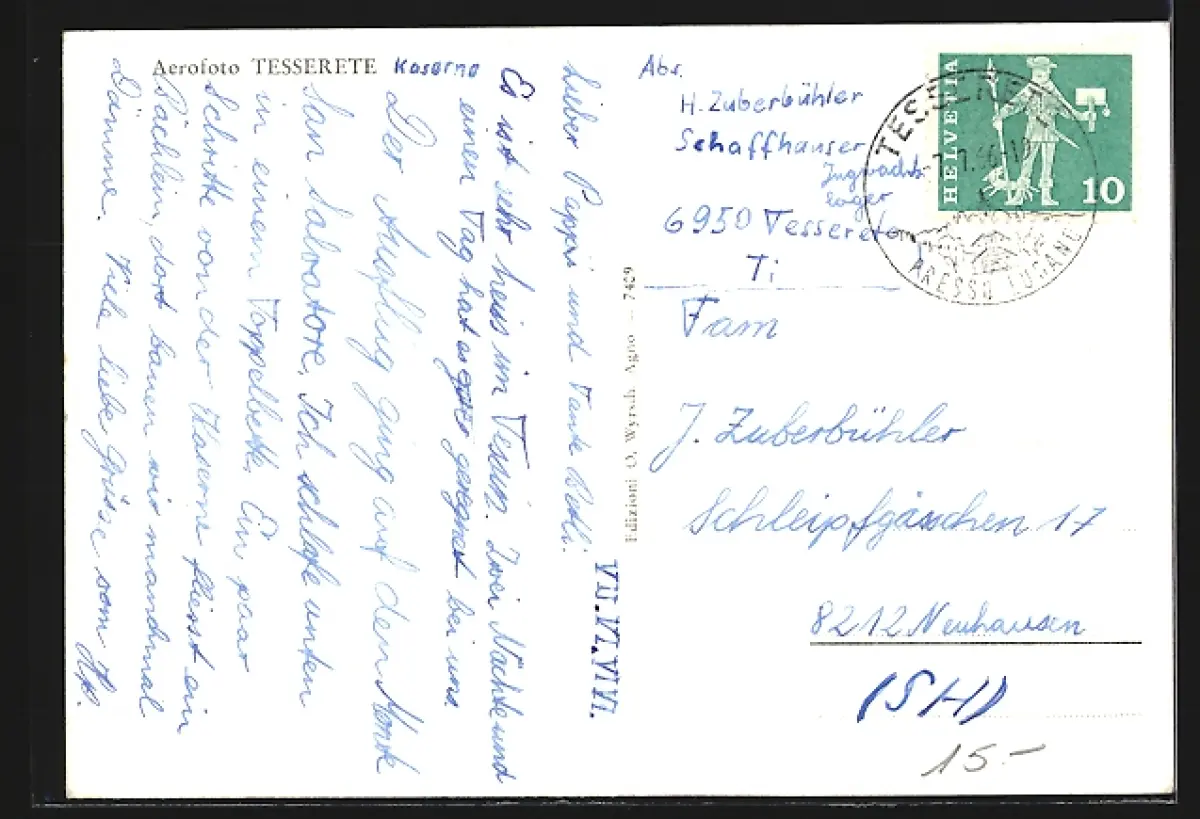 Aerofoto TESSERETE Kaserne
Lieber Peppi und Tante Bethli.
Es ist sehr heiss im Tessin. Zwei Nächte und
einen Tag hat es geregnet bei uns.
Der Ausflug ging auf den Monte
San Salvatore. Ich schlafe unten
in einem Doppelbett. Ein paar
Schritte von der Kaserne fliesst ein
Bächlein, dort bauen wir manchmal
Dämme. Viele liebe Grüsse vom
VII. VI. VI VI.
Edizioni O. Wyrsch Agno — 7429
Abs.
H. Zuberbühler
Schaffhauser
Jugwacht-
lager
6950 Tesserete
Ti
HELVETIA
10
TESSERETE
PRESSO LUGANO
Fam
J. Zuberbühler
Schleipfgässchen 17
8212 Neuhausen
(SH)
15.-